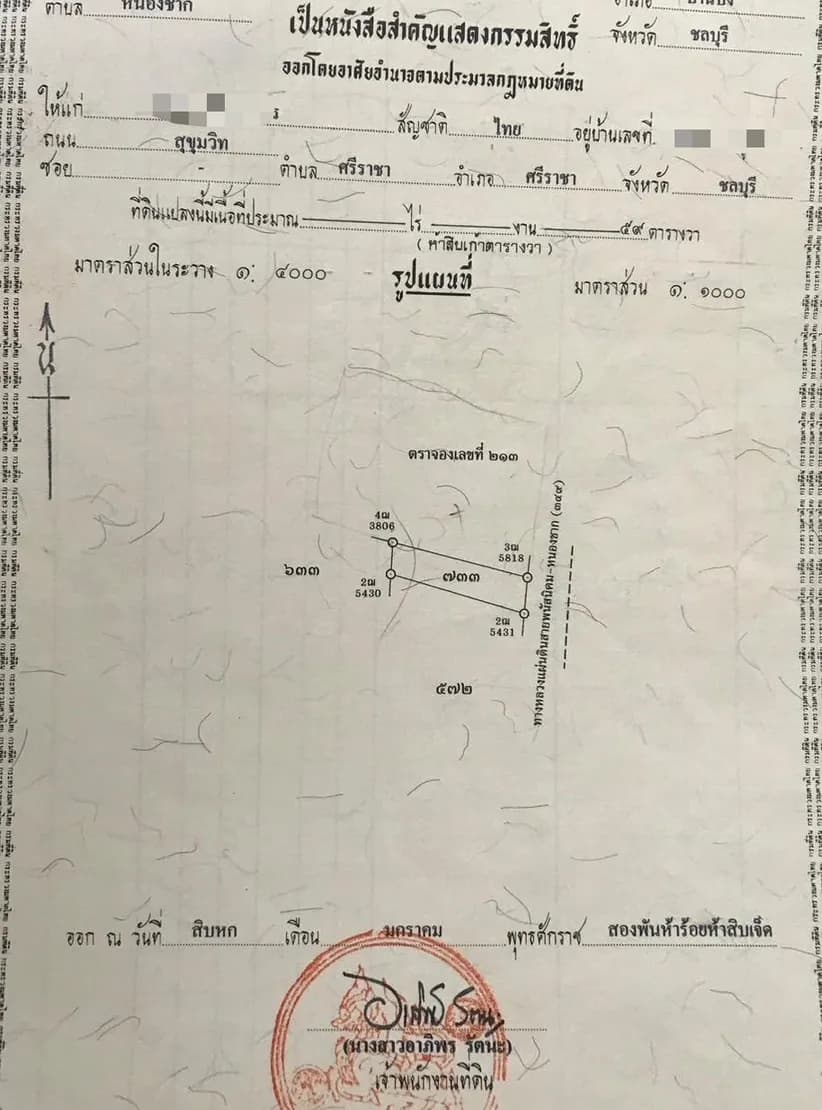 ตำบล หนองซาก อำเภอ บ้านบึง
เป็นหนังสือสำคัญแสดงกรรมสิทธิ์ จังหวัด ชลบุรี
ออกโดยอาศัยอำนาจตามประมวลกฎหมายที่ดิน
ให้แก่ สัญชาติ ไทย อยู่บ้านเลขที่
ถนน สุขุมวิท
ซอย - ตำบล ศรีราชา อำเภอ ศรีราชา จังหวัด ชลบุรี
ที่ดินแปลงนี้มีเนื้อที่ประมาณ ไร่ งาน ๕๙ ตารางวา
( ห้าสิบเก้าตารางวา )
มาตราส่วนในระวาง ๑: ๔๐๐๐ รูปแผนที่ มาตราส่วน ๑: ๑๐๐๐
น
ตราจองเลขที่ ๒๑๓
4ฌ
3806
3ฌ
5818
๖๓๓
2ฌ
5430
๗๓๓
2ฌ
5431
ทางหลวงแผ่นดินสายพนัสนิคม-หนองซาก (๓๔๙)
๕๗๒
ออก ณ วันที่ สิบหก เดือน มกราคม พุทธศักราช สองพันห้าร้อยห้าสิบเจ็ด
(นางสาวอาภิพร รัตนะ)
เจ้าพนักงานที่ดิน